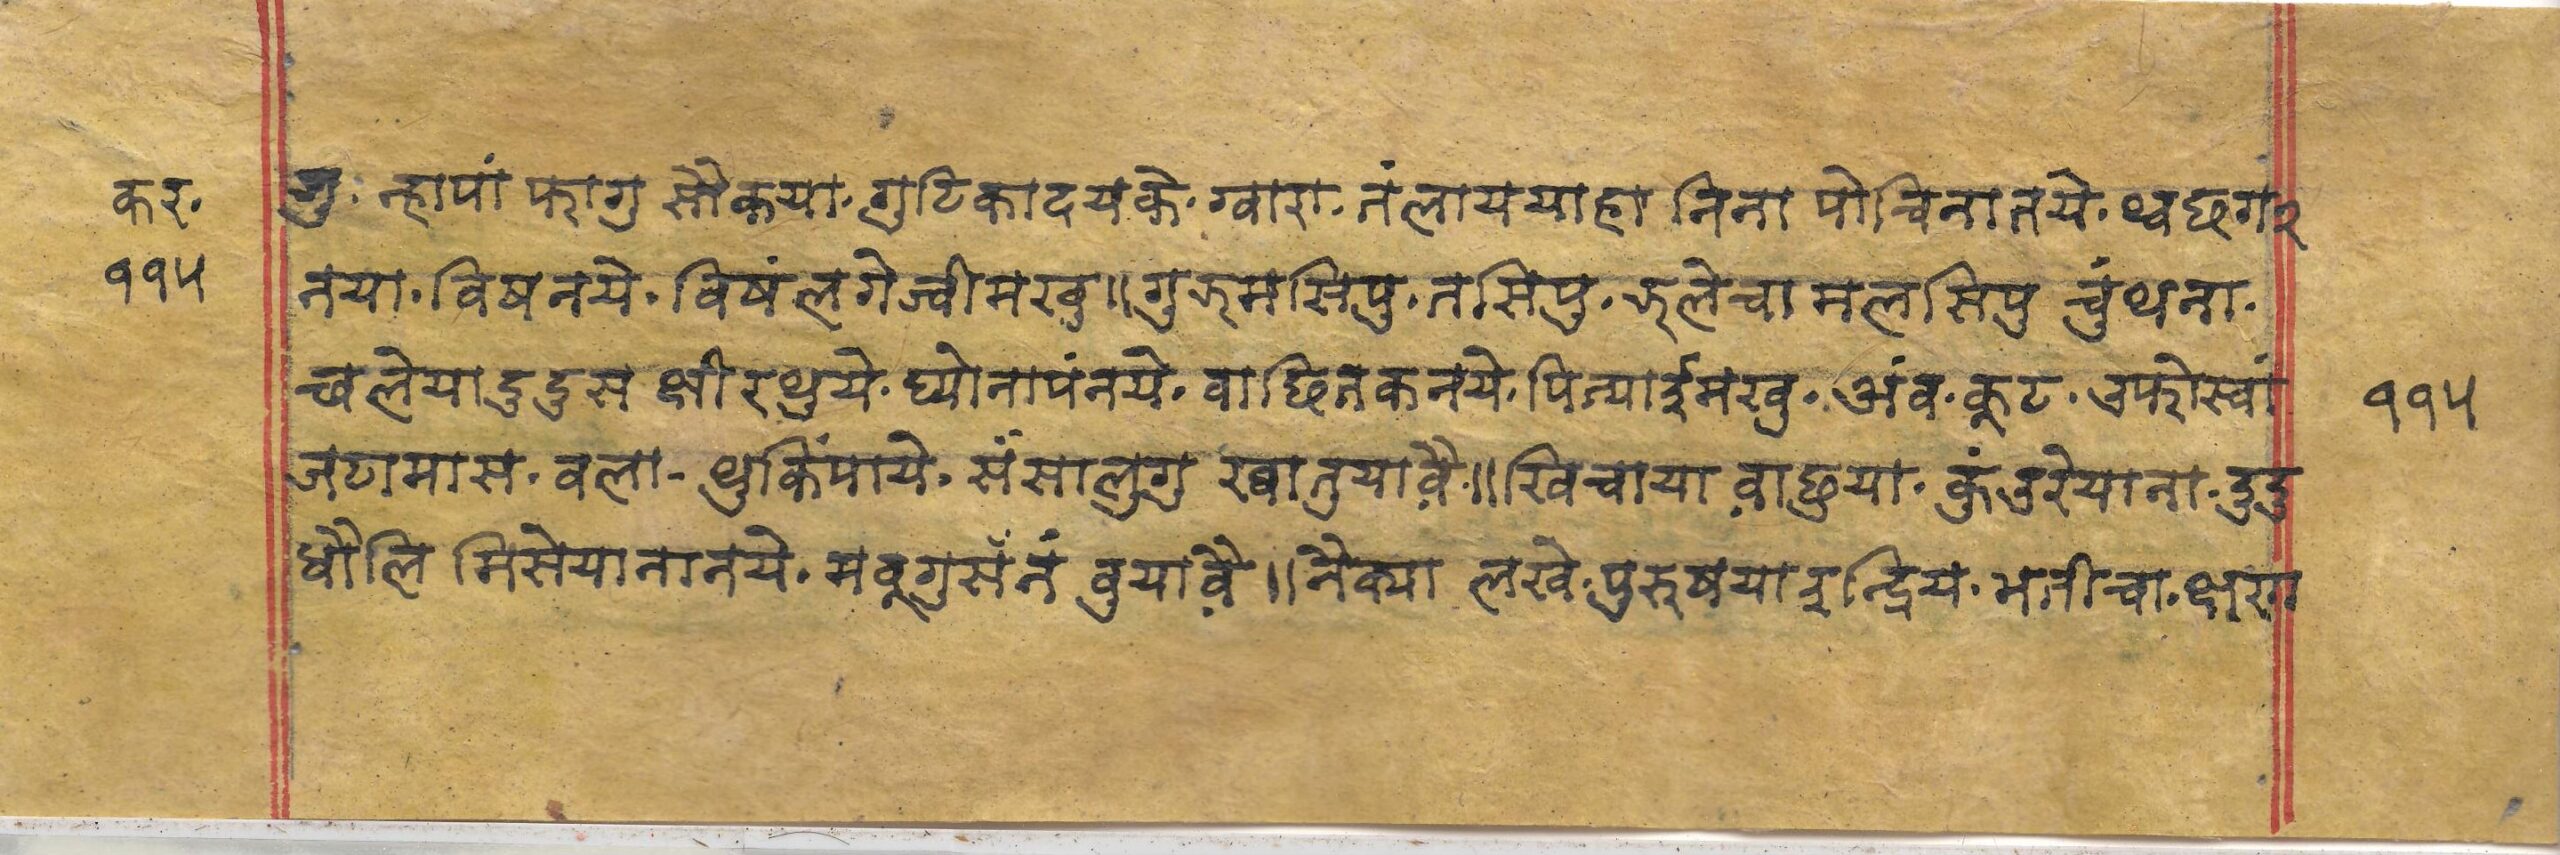 कर. गु. न्हापां फागु सौकया. गुटिकादयके. ग्वारा. तंलाययाहा निना पोचिनातये. थ्वछगर
११५ नया. विषनये. विषंलगेज्वीमखु॥गुरुमसिपु. तसिपु. रुलेचामलसिपु चुंथना.
च्वलेयादुदुस क्षीरथुये. घ्योनापंनये. वाछितकनये. पित्याईमखु. अंव. कूट. उफोस्वां ११५
जटामास. वला- थुकिंपाये. संसालुगु ख्वातुयावै॥खिचाया वाछुया. कुंउरेयाना. दुदु
धौलि मिसेयानानये. मवूगुसँनं वुयावै॥नैक्या लखे. पुरुषयाइन्द्रिय. भतीचा. क्षरग